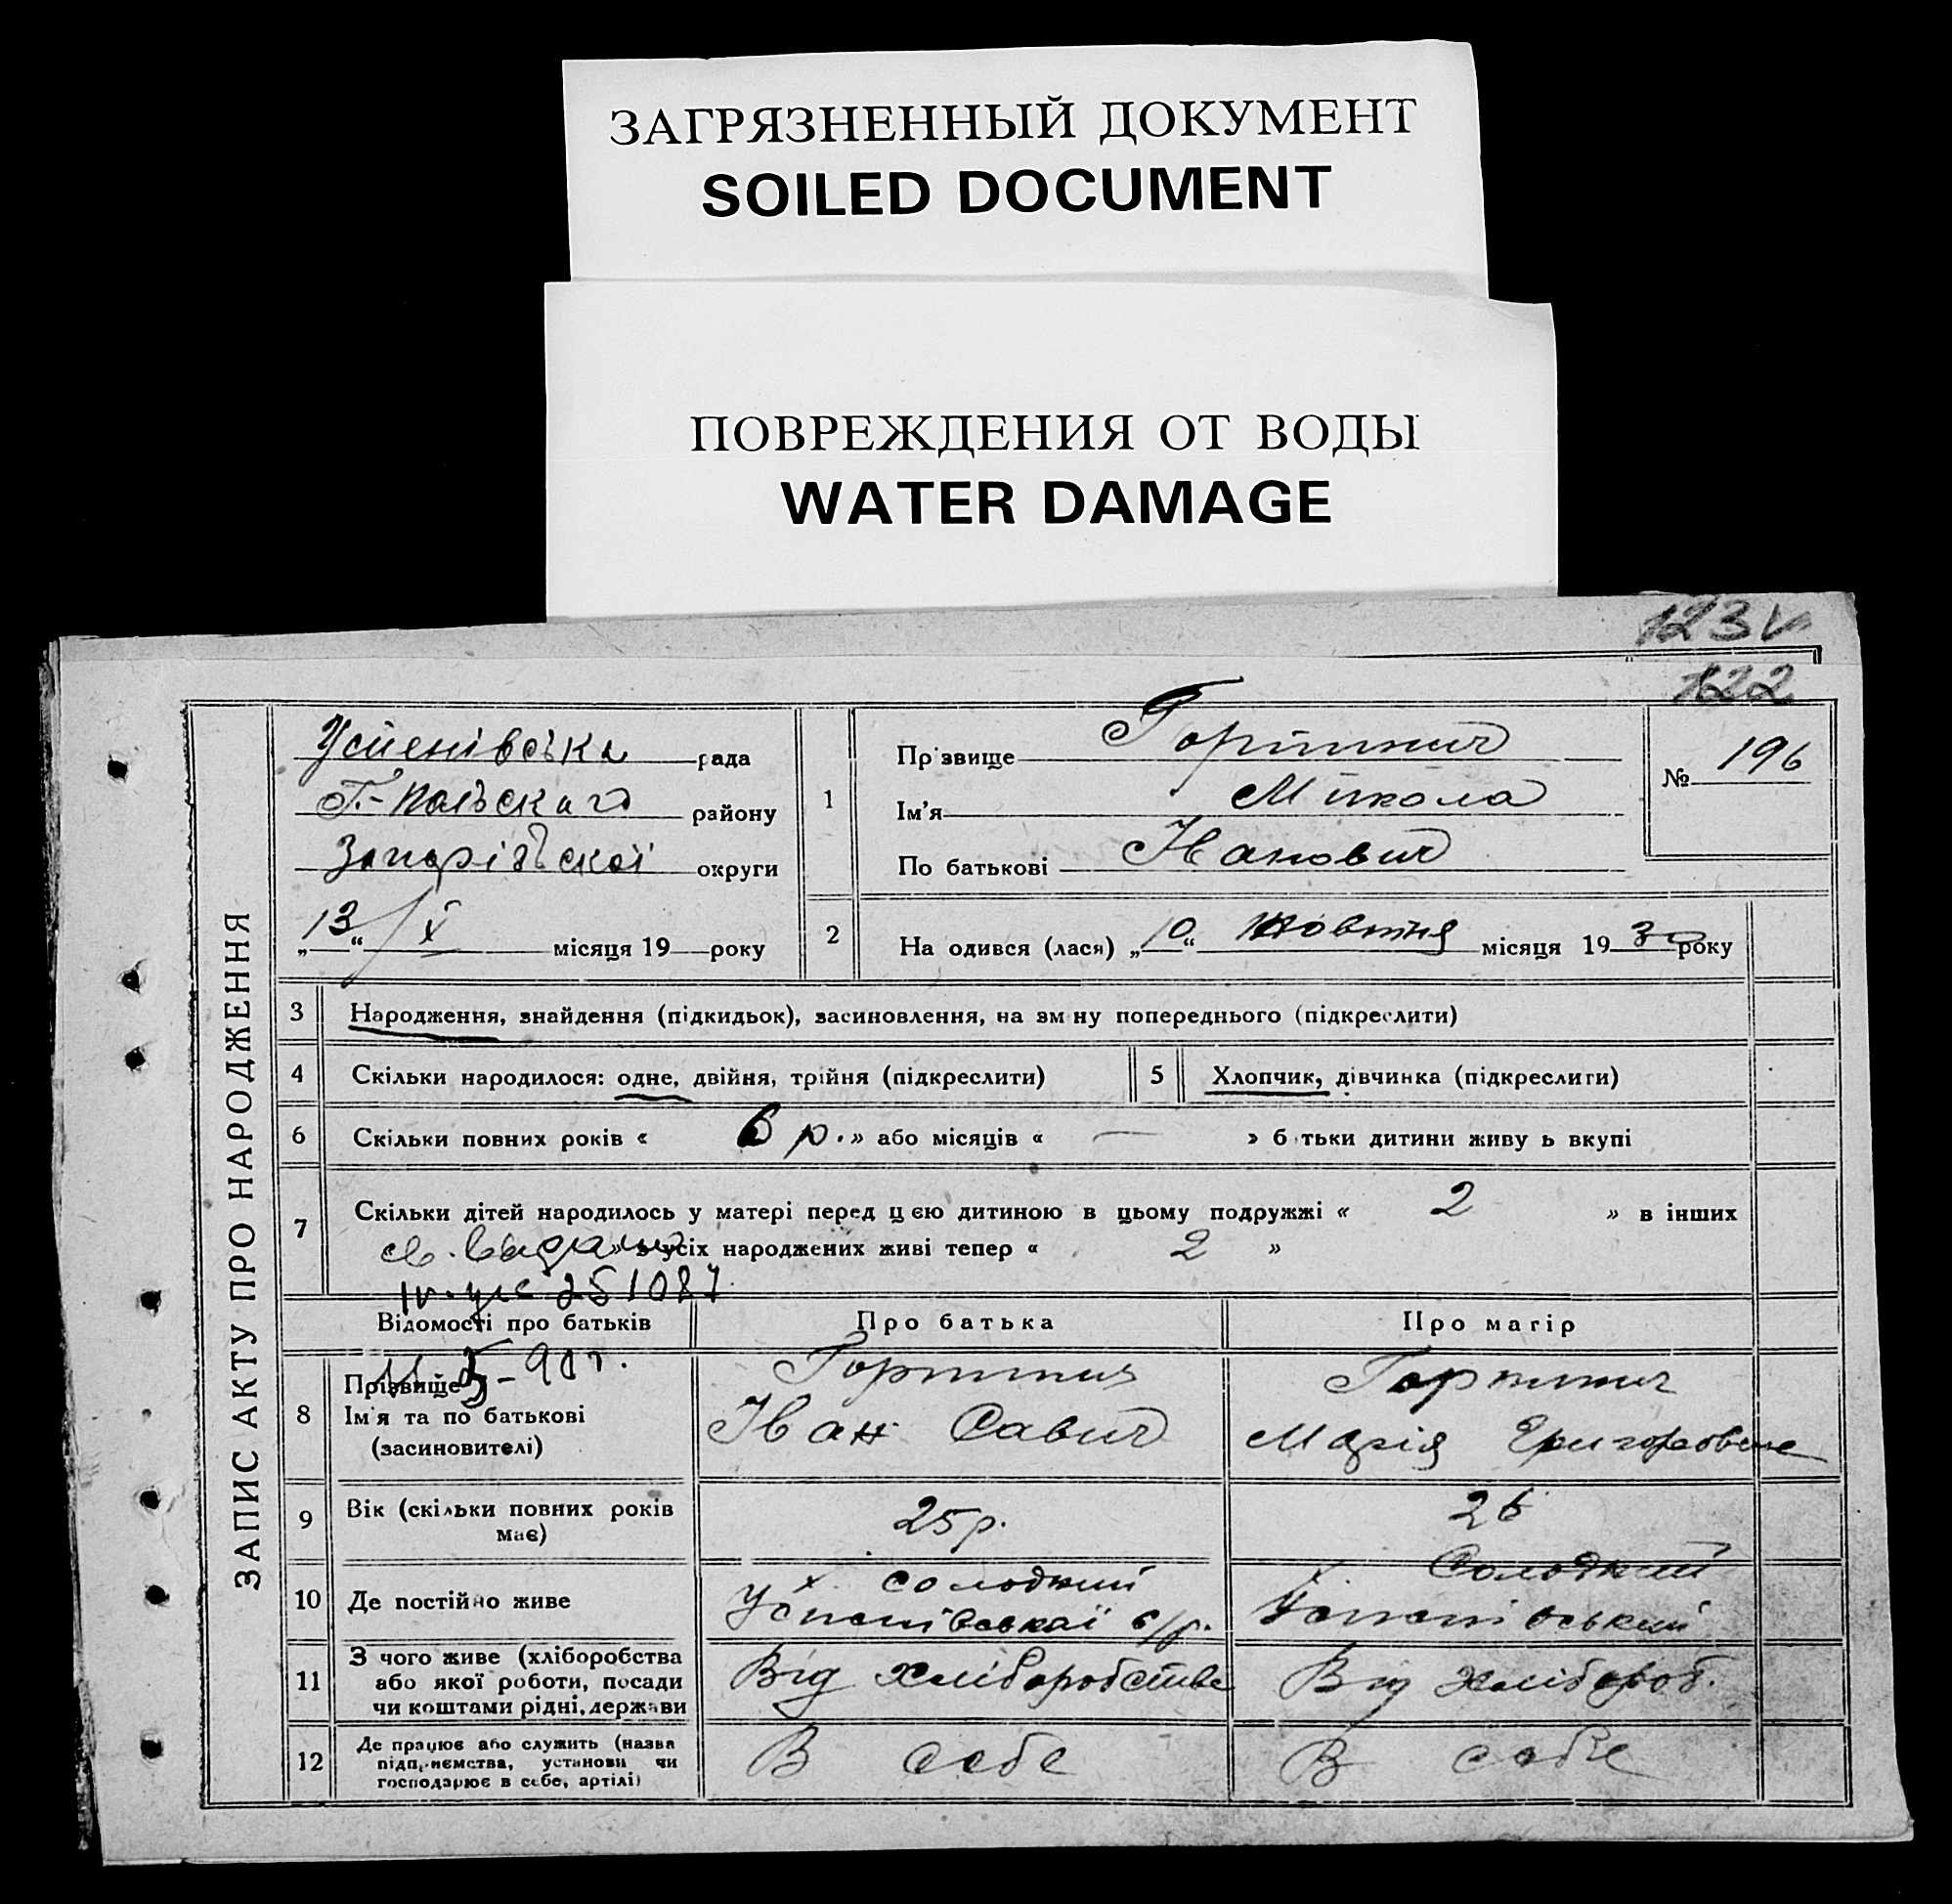 ЗАГРЯЗНЕННЫЙ ДОКУМЕНТ
SOILED DOCUMENT
ПОВРЕЖДЕНИЯ ОТ ВОДЫ
WATER DAMAGE
123 V
122
ЗАПИС АКТУ ПРО НАРОДЖЕННЯ
Успенівська рада
Г.-Польского району
Запорізької округи
„13“ X місяця 19 року
1
Прізвище Горпинич
Ім'я Микола
По батькові Іванович
№ 196
2
На одився (лася) „10“ Жовтня місяця 1930 року
3 Народження, знайдення (підкидьок), засиновлення, на зм ну попереднього (підкреслити)
4 Скільки народилося: одне, двійня, трійня (підкреслити)
5 Хлопчик, дівчинка (підкреслити)
6 Скільки повних років « 6 р. » або місяців « — » б тьки дитини живу ь вкупі
7 Скільки дітей народилось у матері перед ц єю дитиною в цьому подружжі « 2 » в інших
» з усіх народжених живі тепер « 2 »
251087
Відомості про батьків Про батька Про матір
8 Прізвище
Ім'я та по батькові
(засиновителі)
Горпинич
Іван Савич
Горпинич
Марія Григоровна
9 Вік (скільки повних років має)
25 р.
26
10 Де постійно живе
х. Солодкий
Успенівської с/р.
х. Солодкий
Успенівський
11 З чого живе (хліборобства
або якої роботи, посади
чи коштами рідні, держави
Від хліборобства
Від хлібороб.
12 Де працює або служить (назва
підпр.иємства, установи чи
господарює в себе, артілі)
В себе
В себе